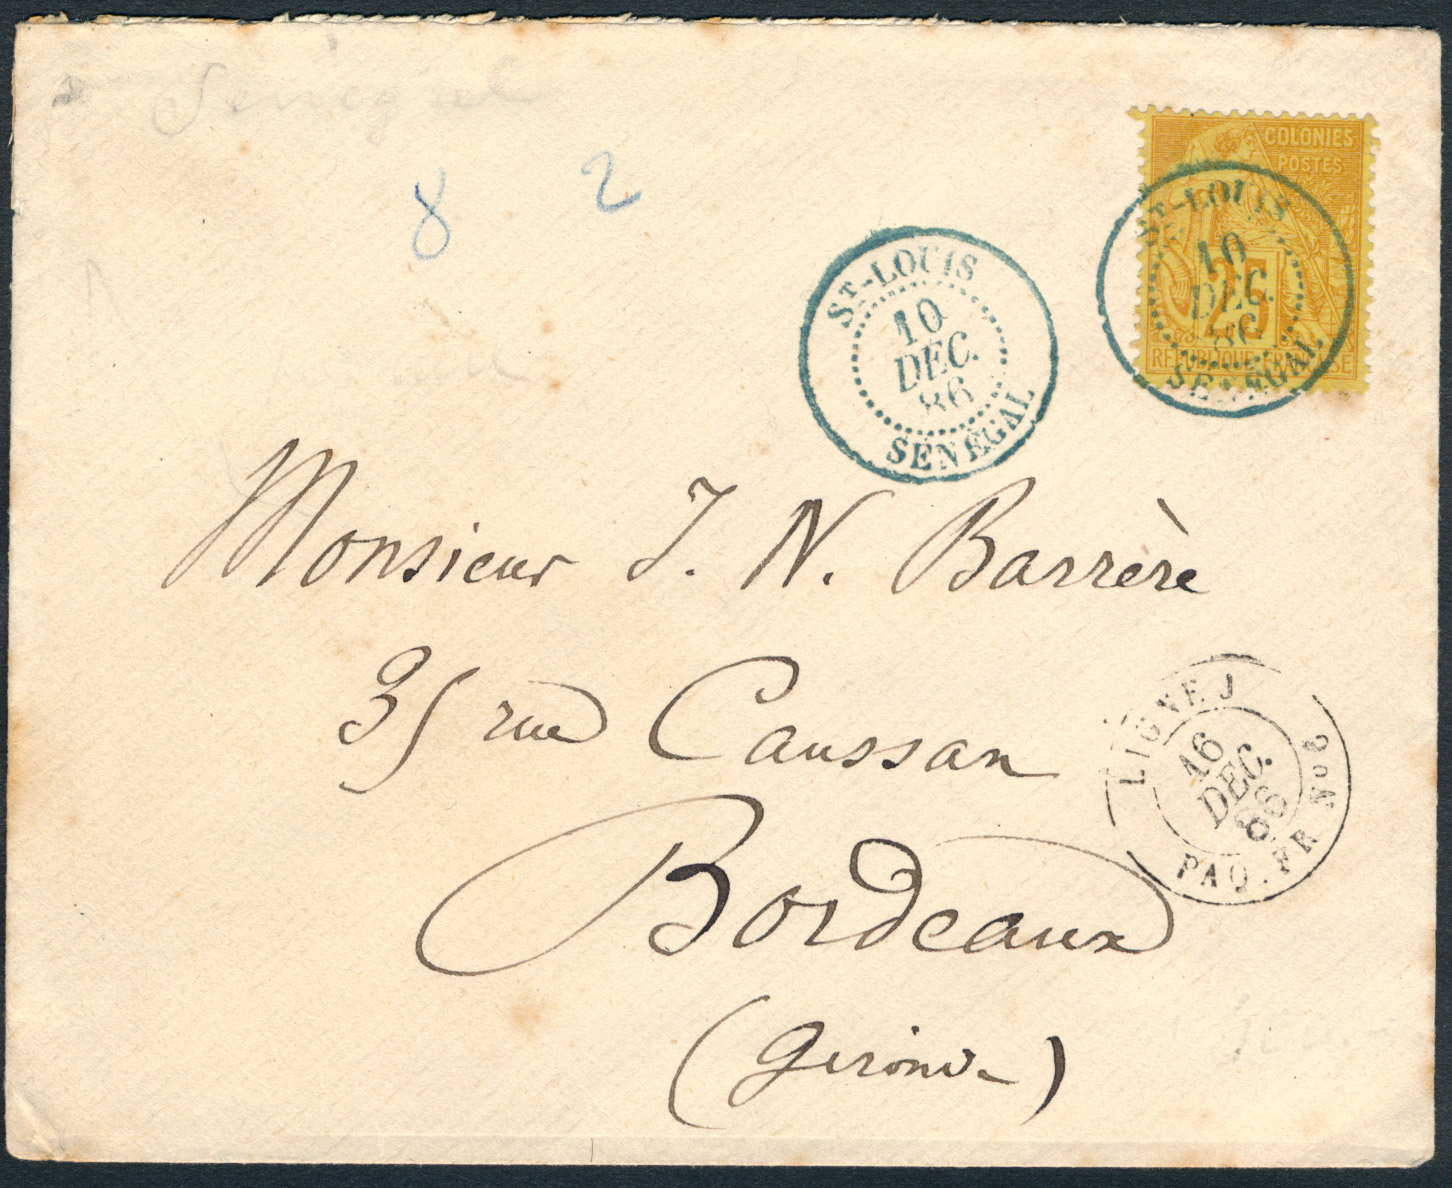 Senegal
8 2
COLONIES
POSTES
25
REPUBLIQUE FRANÇAISE
ST-LOUIS
10
DEC.
86
SÉNÉGAL
ST-LOUIS
10
DEC.
86
SÉNÉGAL
Monsieur J. N. Barrère
35 rue Caussan
Bordeaux
(Gironde)
LIGNE J
16
DEC.
86
PAQ. FR No 6